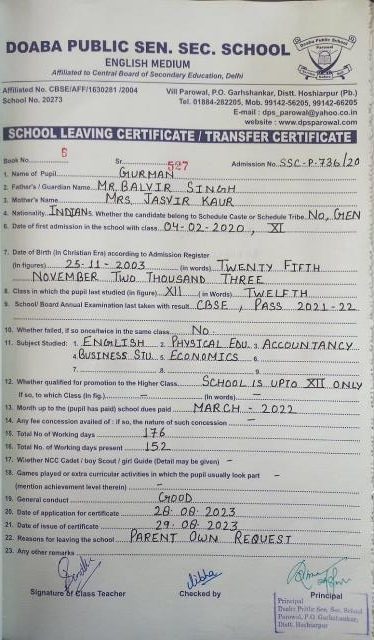 DOABA PUBLIC SEN. SEC. SCHOOL
ENGLISH MEDIUM
Affiliated to Central Board of Secondary Education, Delhi
Affiliated No. CBSE/AFF/1630281 /2004
School No. 20273
Vill Parowal, P.O. Garhshankar, Distt. Hoshiarpur (Pb.)
Tel. 01884-282205, Mob. 99142-56205, 99142-66205
E-mail : dps_parowal@yahoo.co.in
website : www.dpsparowal.com
SCHOOL LEAVING CERTIFICATE / TRANSFER CERTIFICATE
Book No. 6 Sr. 527 Admission No. SSC-P-736/20
1. Name of Pupil GURMAN
2. Father's / Guardian Name MR. BALVIR SINGH
3. Mother's Name MRS. JASVIR KAUR
4. Nationality INDIAN 5. Whether the candidate belong to Schedule Caste or Schedule Tribe NO, GEN
6. Date of first admission in the school with class 04-02-2020, XI
7. Date of Birth (In Christian Era) according to Admission Register
(in figures) 25-11-2003 (in words) TWENTY FIFTH
NOVEMBER TWO THOUSAND THREE
8. Class in which the pupil last studied (in figure) XII (in Words) TWELFTH
9. School/ Board Annual Examination last taken with result CBSE, PASS 2021-22
10. Whether failed, if so once/twice in the same class NO
11. Subject Studied: 1. ENGLISH 2. PHYSICAL EDU. 3. ACCOUNTANCY
4. BUSINESS STU. 5. ECONOMICS 6.
7. 8. 9.
12. Whether qualified for promotion to the Higher Class SCHOOL IS UPTO XII ONLY
If so, to which Class (in fig.) – (in Words) –
13. Month up to the (pupil has paid) school dues paid MARCH - 2022
14. Any fee concession availed of : if so, the nature of such concession –
15. Total No of Working days 176
16. Total No. of Working days present 152
17. Whether NCC Cadet / boy Scout / girl Guide (Detail may be given) –
18. Games played or extra curricular activities in which the pupil usually look part
(mention achievement level therein) –
19. General conduct GOOD
20. Date of application for certificate 28.08.2023
21. Date of issue of certificate 29.08.2023
22. Reasons for leaving the school PARENT OWN REQUEST
23. Any other remarks
Signature of Class Teacher Checked by Principal
Principal
Doaba Public Sen. Sec. School
Parowal, P.O. Garhshankar,
Distt. Hoshiarpur